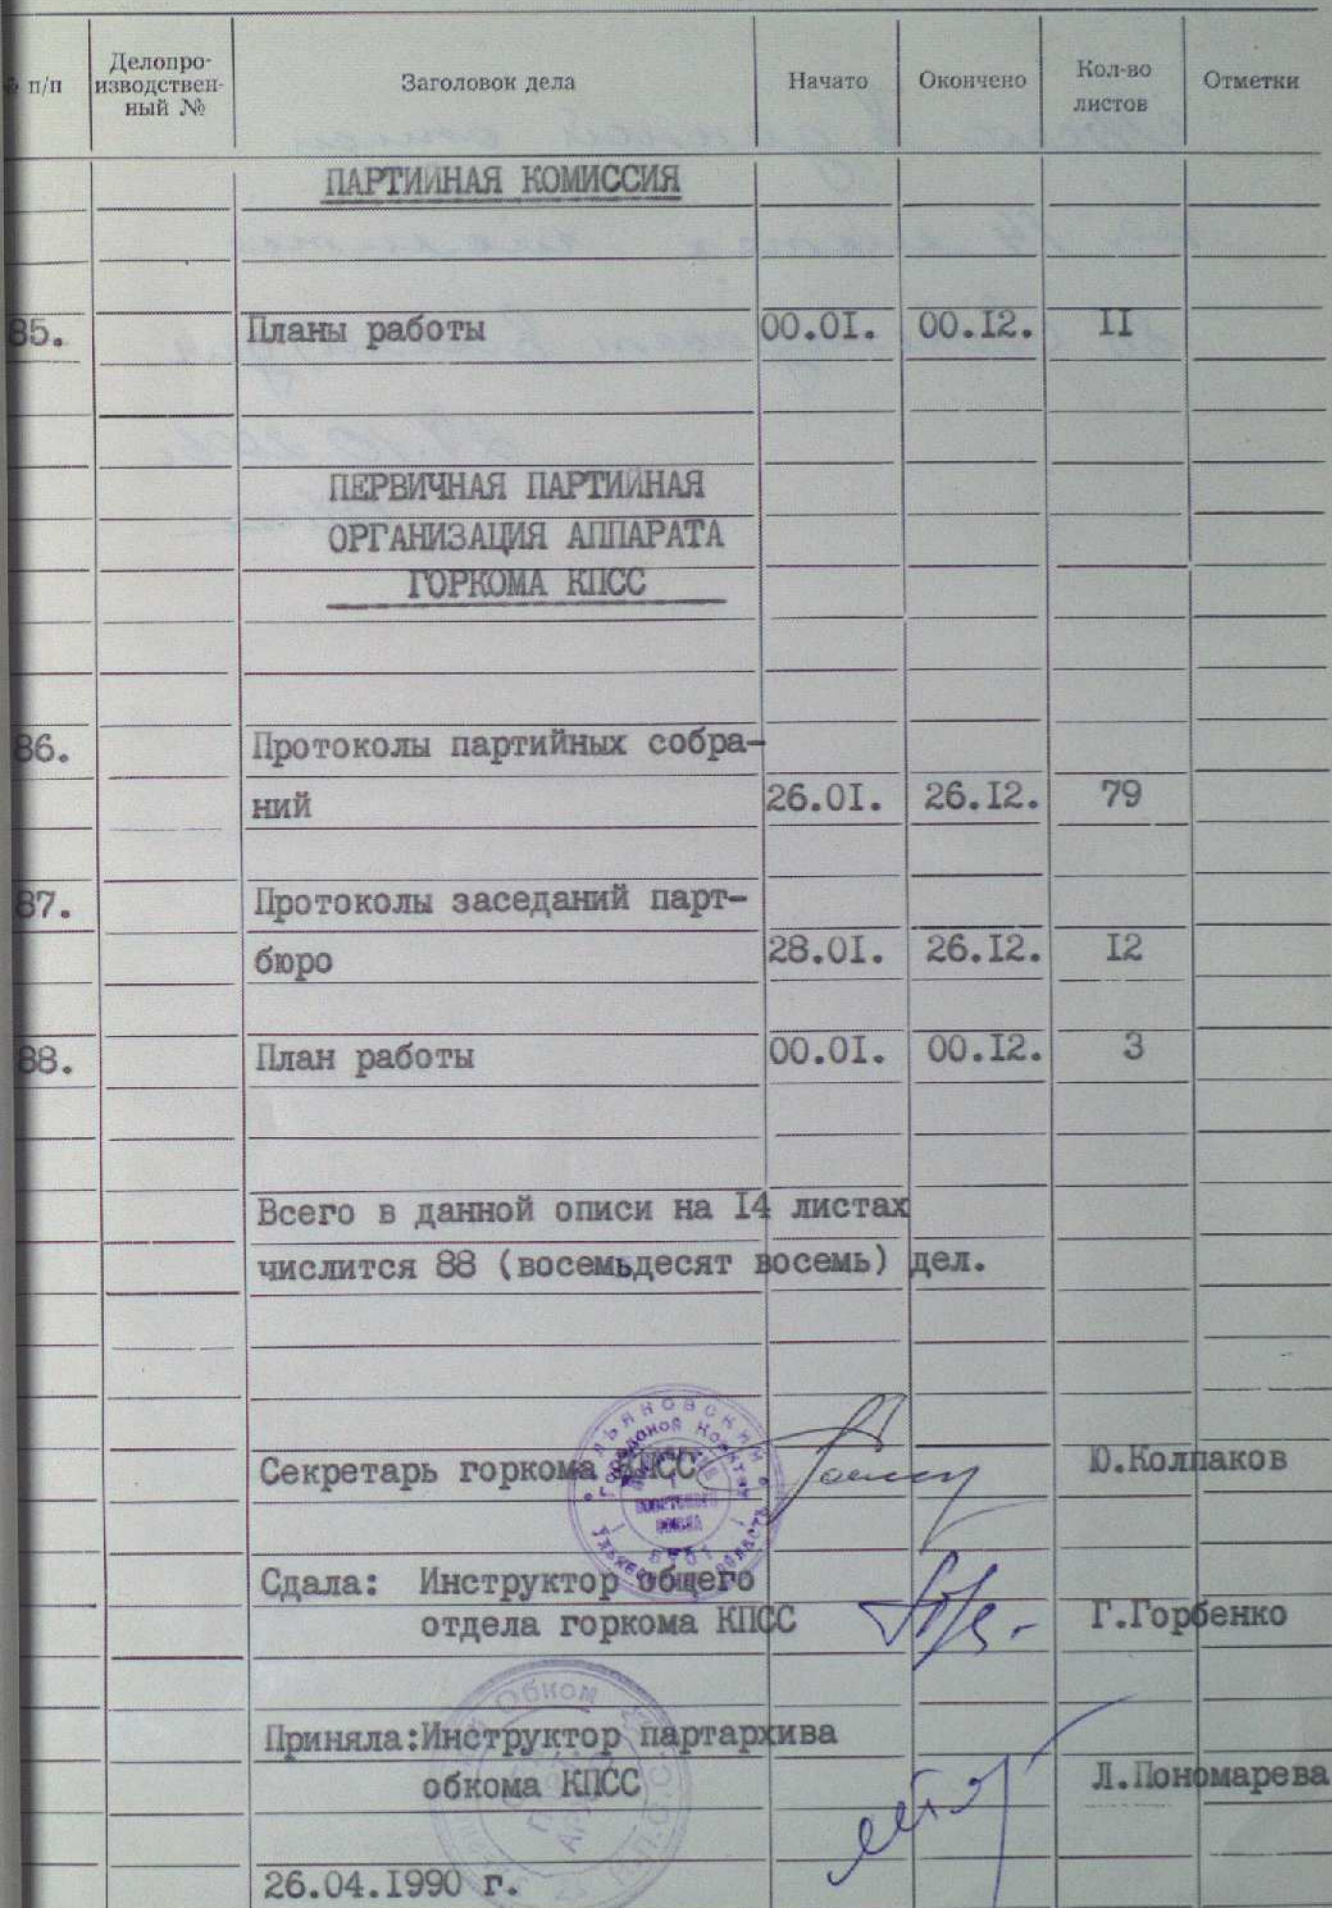 п/п Делопро-изводствен-ный № Заголовок дела Начато Окончено Кол-во листов Отметки
ПАРТИЙНАЯ КОМИССИЯ
85. Планы работы 00.0I. 00.I2. II
ПЕРВИЧНАЯ ПАРТИЙНАЯ
ОРГАНИЗАЦИЯ АППАРАТА
ГОРКОМА КПСС
86. Протоколы партийных собра-
ний 26.0I. 26.I2. 79
87. Протоколы заседаний парт-
бюро 28.0I. 26.I2. I2
88. План работы 00.0I. 00.I2. 3
Всего в данной описи на I4 листах
числится 88 (восемьдесят восемь) дел.
Секретарь горкома КПСС Ю.Колпаков
Сдала: Инструктор общего
отдела горкома КПСС Г.Горбенко
Приняла:Инструктор партархива
обкома КПСС Л.Пономарева
26.04.I990 г.